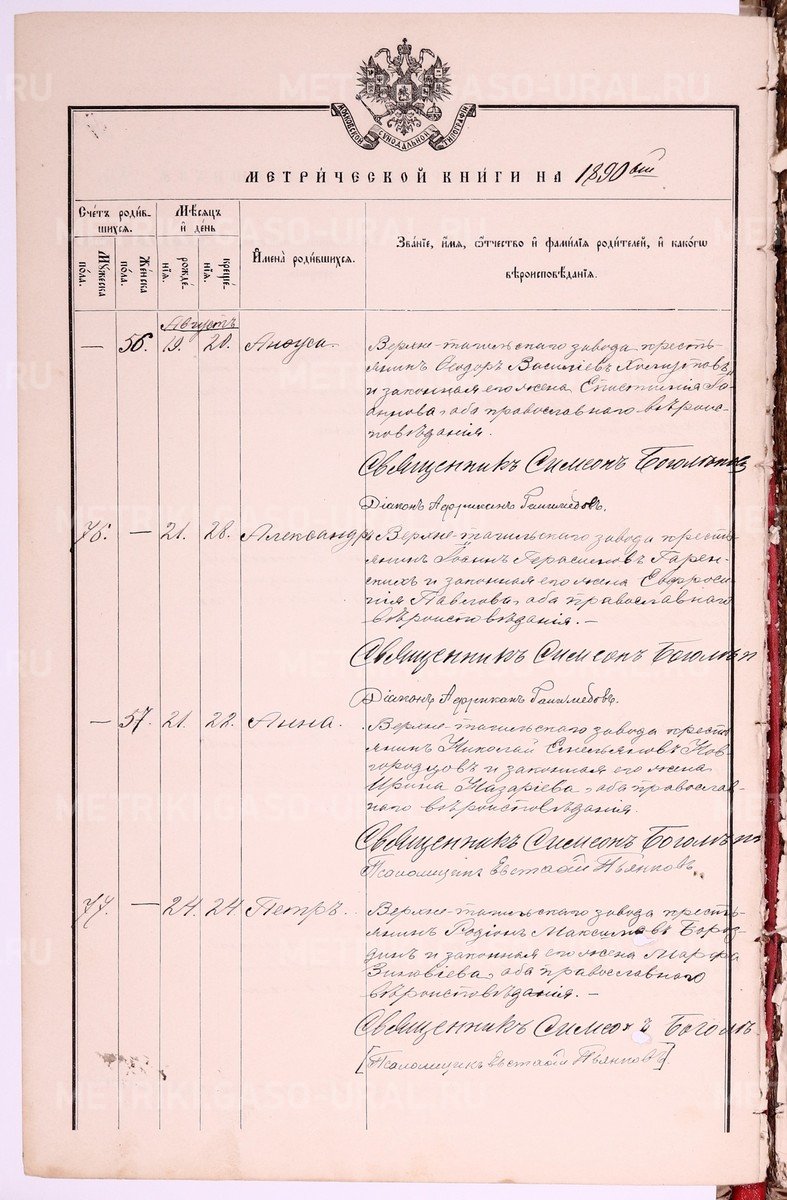 METRIKI.GASO-URAL.RU
МОСКОВСКОЙ СѴНОДАЛЬНОЙ ТИПОГРАФІИ
МЕТРИ́ЧЕСКОЙ КНИ́ГИ НА 1890 ый
Сче́тъ роди́в-
шихся.
Мѣ́сяцъ
и҆ де́нь
Му́жеска
по́ла.
Же́нска
по́ла.
рожде́-
нія.
креще́-
нія.
И҆мена̀ роди́вшихся.
Зва́ніе, и҆́мя, ѻ҆́тчество и҆ фами́лія роди́телей, и҆ како́гѡ
вѣроисповѣ́данія.
Августъ
— 56. 19. 20. Анѳуса. Верхне-тагильскаго завода кресть-
янинъ Ѳеодоръ Василіевъ
и законная его жена Епистимія Іо-
аннова, оба православнаго вѣроис-
повѣданія.
Священникъ Симеонъ Боголѣпов
Діаконъ Африканъ Ганимедовъ.
76. — 21. 28. Александръ Верхне-тагильскаго завода кресть-
янинъ Іоаннъ Герасимовъ Гарен-
скихъ и законная его жена Евфроси-
нія Павлова, оба православнаго
вѣроисповѣданія. —
Священникъ Симеонъ Боголѣп
Діаконъ Африканъ Ганимедовъ.
— 57. 21. 22. Анна. Верхне-тагильскаго завода кресть-
янинъ Николай Емельяновъ Нов-
городцовъ и законная его жена
Ирина Назаріева, оба православ-
наго вѣроисповѣданія.
Священникъ Симеонъ Боголѣп
Псаломщикъ Евстафій Пьянковъ
77. — 24. 24. Петръ. Верхне-тагильскаго завода кресть-
янинъ Родіонъ Максимовъ Бороз-
динъ и законная его жена Марфа
Зиновіева, оба православнаго
вѣроисповѣданія. —
Священникъ Симеонъ Боголѣ
[Псаломщикъ Евстафій Пьянковъ]